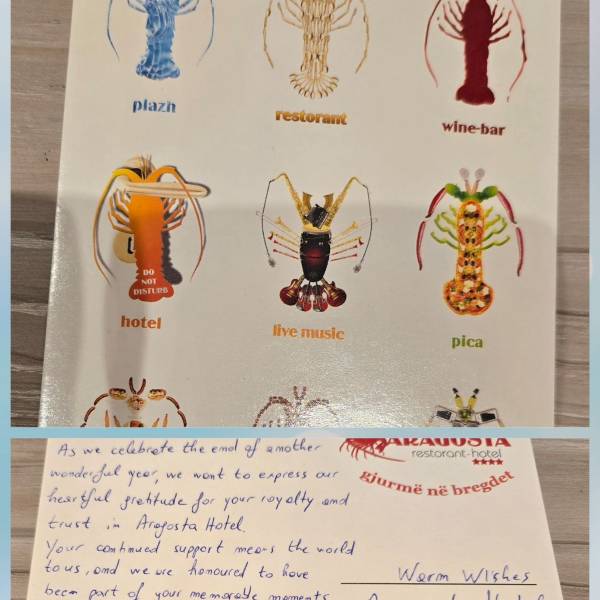 plazh
restorant
wine-bar
DO
NOT
DISTURB
hotel
live music
pica
ARAGOSTA
restorant-hotel
gjurmë në bregdet
As we celebrate the end of another
wonderful year, we want to express our
heartful gretitude for your royalty and
trust in Aragosta Hotel.
Your continued support means the world
to us, and we are honoured to have
been part of your memorable moments
Warm Wishes